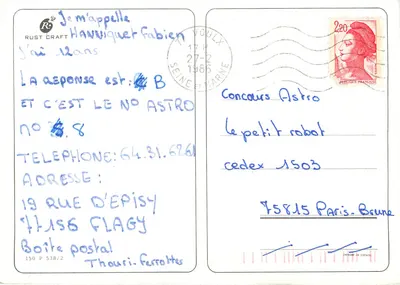 Je m'appelle
Hanniquet Fabien
J'ai 12 ans
LA REPONSE est: B
ET C'EST LE No ASTRO
no 8
TELEPHONE: 64.31.62.61
ADRESSE:
19 RUE D'EPISY
77156 FLAGY
Boîte postal
Thouri-Ferrottes
RUST CRAFT
150 P 538/2
27-2
1986
SEINE ET MARNE
2,20
Concours Astro
le petit robot
cedex 1503
75815 Paris-Brune